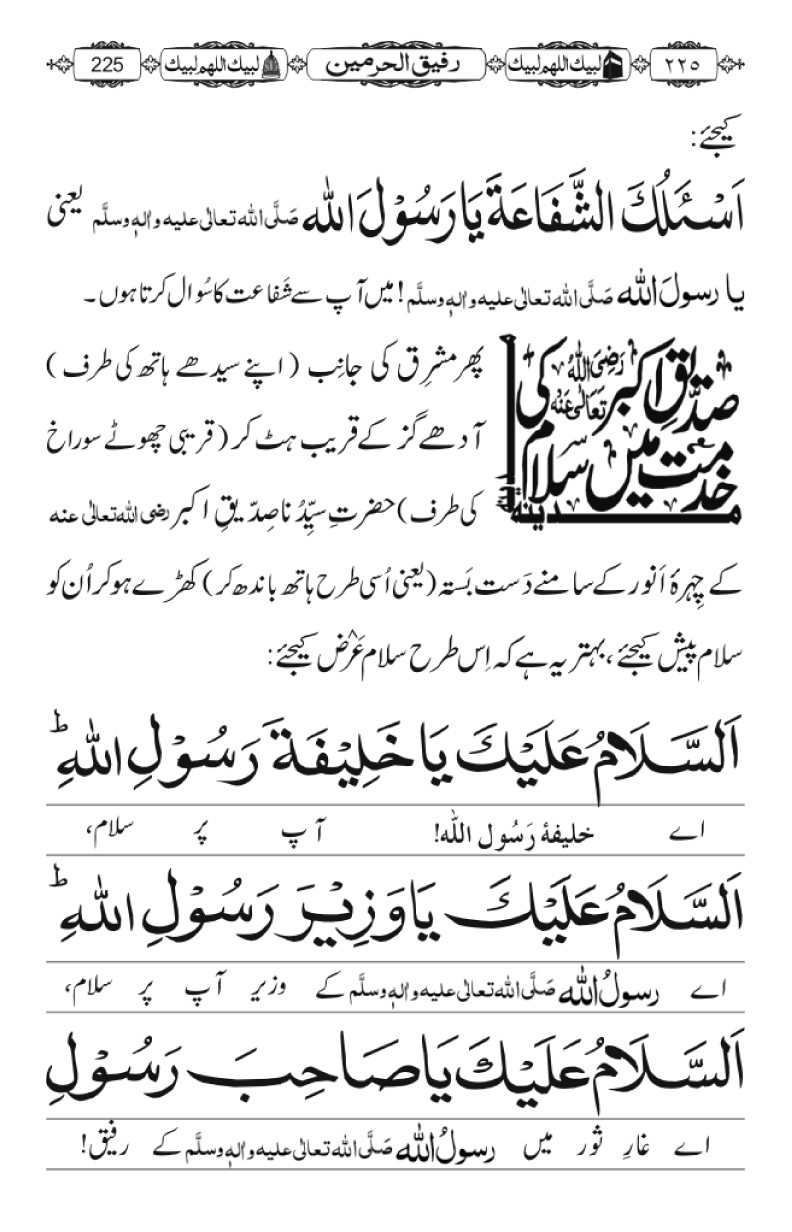 ٢٢٥ لبیك اللھم لبیك رفیق الحرمین لبیك اللھم لبیك 225
کیجئے:
اَسْـَٔلُكَ الشَّفَاعَةَ يَارَسُوْلَ اللّٰه صَلَّی اللّٰہ تعالٰی علیہ واٰلہٖ وسلَّم یعنی
یا رسولَ اللّٰہ صَلَّی اللّٰہ تعالٰی علیہ واٰلہٖ وسلَّم! میں آپ سے شَفاعت کا سُوال کرتا ہوں۔
صدّیقِ اکبر رَضِیَ اللّٰہُ تَعَالٰی عَنْہُ کی
خدمت میں سلام
مدینہ
پھر مشرِق کی جانِب (اپنے سیدھے ہاتھ کی طرف)
آدھے گز کے قریب ہٹ کر (قریبی چھوٹے سوراخ
کی طرف) حضرتِ سیِّدُنا صِدّیقِ اکبر رضی اللّٰہ تعالٰی عنہ
کے چہرۂ اَنور کے سامنے دَست بَستہ (یعنی اُسی طرح ہاتھ باندھ کر) کھڑے ہو کر اُن کو
سلام پیش کیجئے، بہتر یہ ہے کہ اِس طرح سلام عَرْض کیجئے:
اَلسَّلَامُ عَلَيْكَ يَا خَلِيْفَةَ رَسُوْلِ اللّٰهِ ؕ
اے خلیفۂ رَسُول اللّٰہ! آپ پر سلام،
اَلسَّلَامُ عَلَيْكَ يَا وَزِيْرَ رَسُوْلِ اللّٰهِ ؕ
اے رسولُ اللّٰہ صَلَّی اللّٰہ تعالٰی علیہ واٰلہٖ وسلَّم کے وزیر آپ پر سلام،
اَلسَّلَامُ عَلَيْكَ يَا صَاحِبَ رَسُوْلِ
اے غارِ ثور میں رسولُ اللّٰہ صَلَّی اللّٰہ تعالٰی علیہ واٰلہٖ وسلَّم کے رفیق!